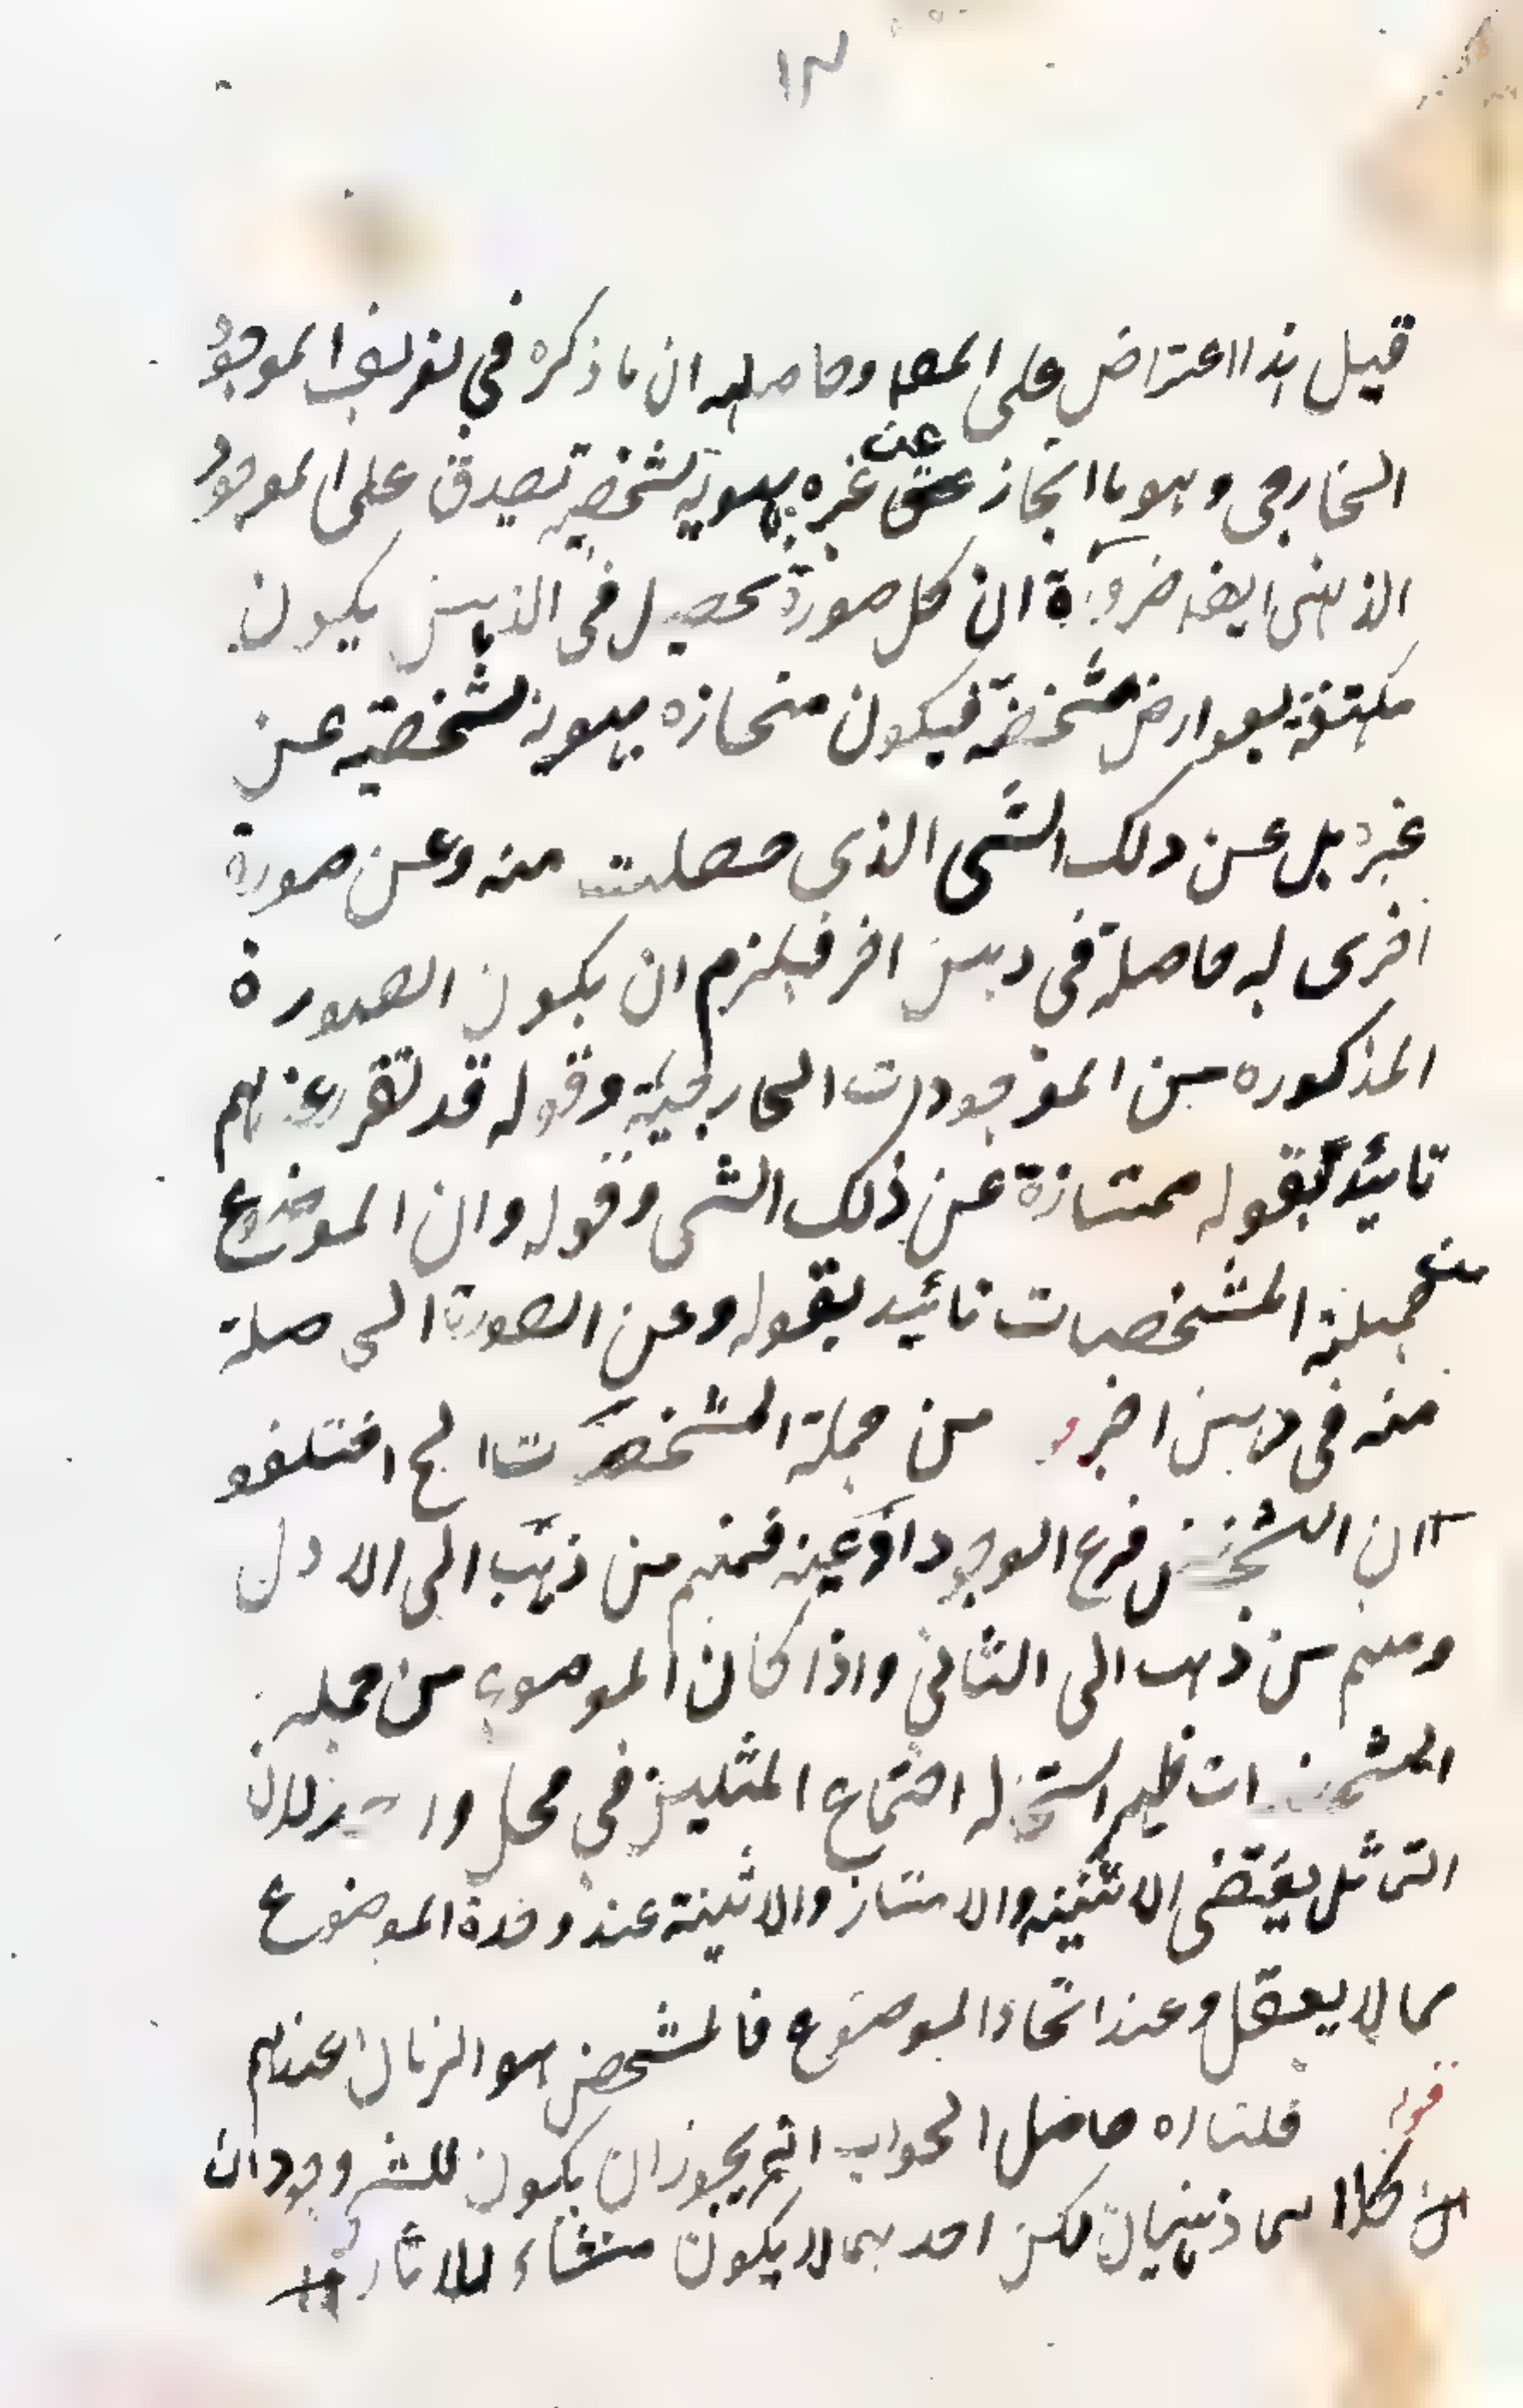 ١٣
قيل هذا اعتراض على المصـ وحاصله ان ما ذكره في تعريف الموجود
الخارجى وهو ما انحاز عن غيره بهوية شخصية تصدق على الموجود
الذهنى ايضا ضرورة ان كل صورة تحصل فى الذهن يكون
مكتنفة بعوارض مشخصة فيكون منحازه بهوية شخصية عن
غيره بل عن ذلك الشى الذى حصلت منه وعن صورة
اخرى له حاصلة فى ذهن اخر فيلزم ان يكون الصورة
المذكوره من الموجودات الخارجية وقوله قد تقرر عندهم
تائيد لقوله ممتازة عن ذلك الشى وقوله وان الموضوع
من جملة المشخصات تائيد بقوله وعن الصورة الحاصلة
منه فى ذهن اخر من جملة المشخصات الخ اختلفو
ان التشخص فرع الوجود او عينه فمنهم من ذهب الى الاول
ومنهم من ذهب الى الثانى واذا كان الموضوع من جملة
المشخصات استحاله اجتماع المثلين فى محل واحد لان
التماثل يقتضى الاثنينه والامتياز والاثنينة عند وحدة الموضوع
مما لا يعقل وعند اتحاد الموضوع فالمشخص هو الزمان عندهم
قوله قلنا اه حاصل الجواب انه يجوز ان يكون للشى وجودان
كلاهما ذهنيان لكن احدهما لا يكون منشاء للاثار